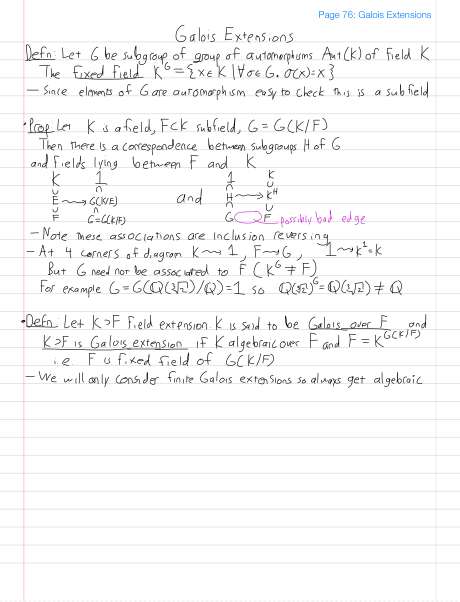 Page 76: Galois Extensions
Galois Extensions
Defn: Let G be subgroup of group of automorphisms Aut(K) of field K
The fixed field K^G = {x∈K | ∀σ∈G. σ(x)=x}
— Since elements of G are automorphism easy to check this is a subfield
• Prop: Let K is a field, F⊂K subfield, G = G(K/F)
Then there is a correspondence between subgroups H of G
and fields lying between F and K
K 1 1 K
∪ ∩ ∩ ∪
E ⇝ G(K/E) and H ⇝ K^H
∪ ∩ ∩ ∪
F G=G(K/F) G F possibly bad edge
— Note these associations are inclusion reversing
— At 4 corners of diagram K ⇝ 1, F ⇝ G, 1 ⇝ K^1 = K
But G need not be associated to F (K^G ≠ F)
For example G = G(ℚ(∛2)/ℚ) = 1 so ℚ(∛2)^G = ℚ(∛2) ≠ ℚ
• Defn: Let K⊃F field extension. K is said to be Galois over F and
K⊃F is Galois extension if K algebraic over F and F = K^G(K/F)
i.e. F is fixed field of G(K/F)
— We will only consider finite Galois extensions so always get algebraic